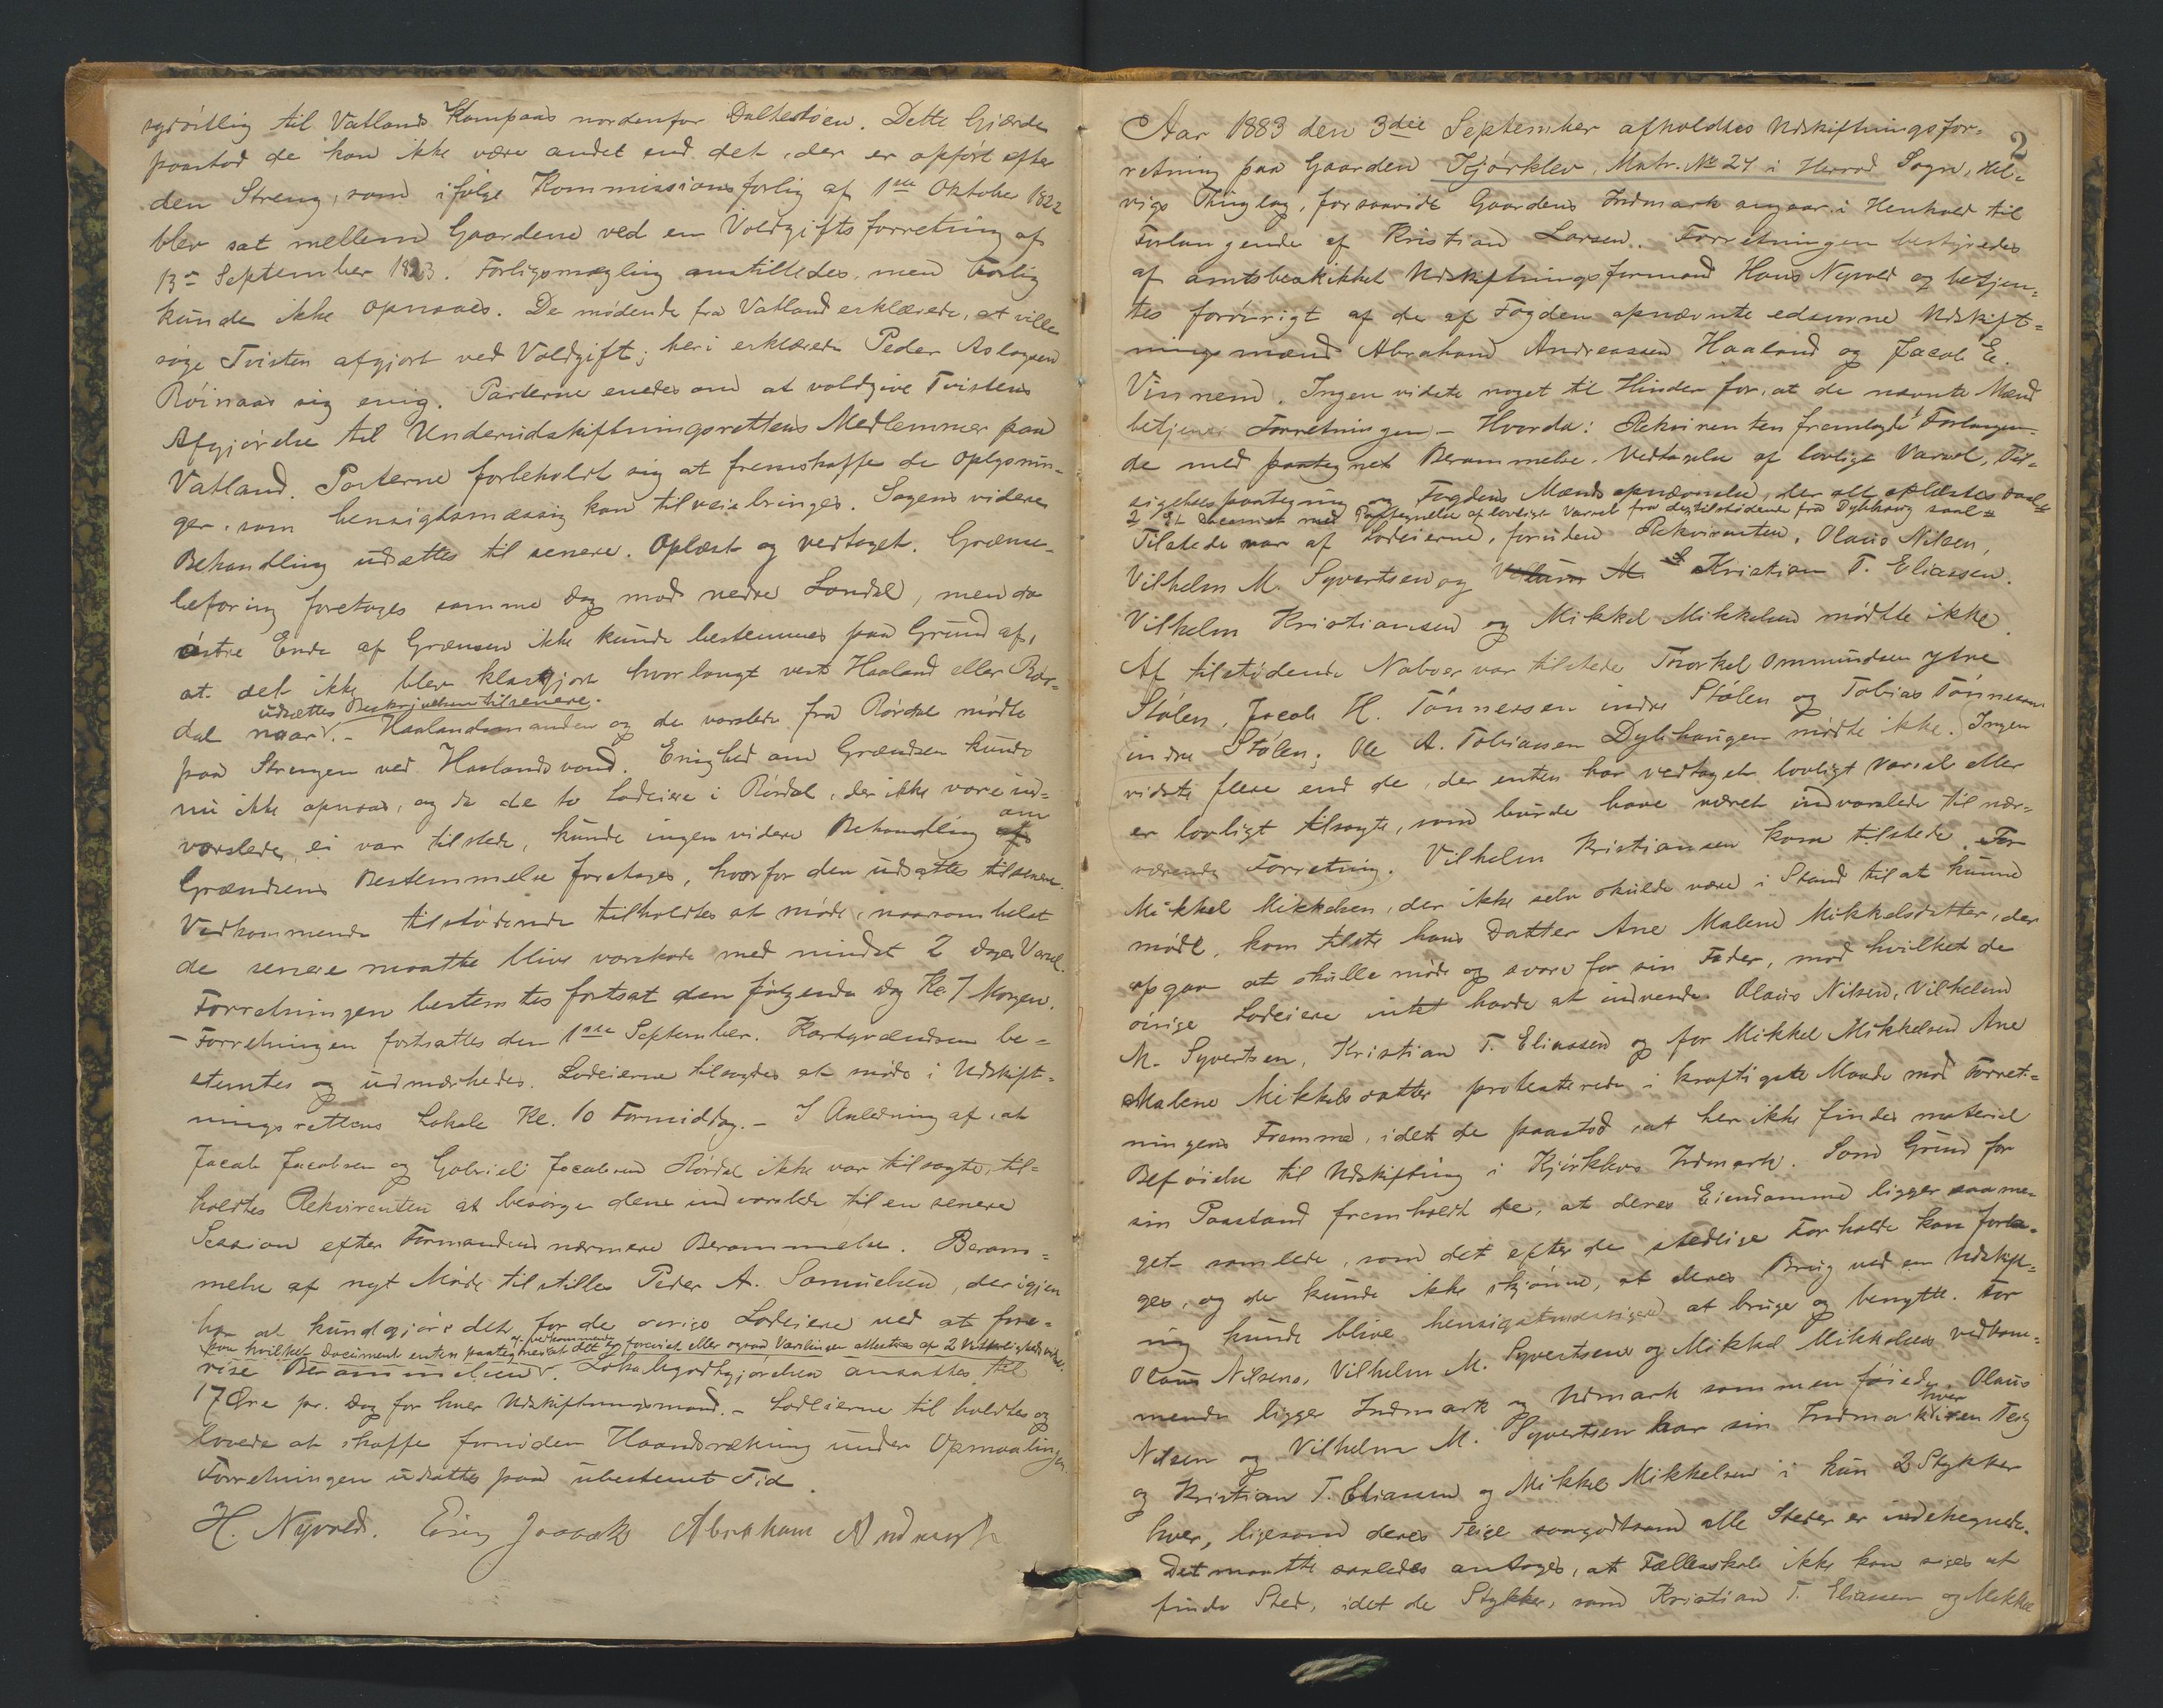 sydöstlig til Vatlands Kampaas nordenfor Dalhestöen. Dette Gjærde
paastod de kan ikke være andet end det, der er opfört efter
den Streng, som ifölge Kommissionsforlig af 1ste Oktober 1822
blev sat mellem Gaardene ved en Voldgiftsforretning af
13de September 1823. Forligsmægling anstilledes, men Forlig
kunde ikke opnaaes. De mödende fra Vatland erklærede, at ville
söge Tvisten afgjort ved Voldgift; heri erklærede Peder Aslagsen
Röinaas sig enig. Parterne enedes om at voldgive Tvistens
Afgjörelse til Underudskiftningsrettens Medlemmer paa
Vatland. Parterne forbeholdt sig at fremskaffe de Oplysnin-
ger, som hensigtsmæssig kan tilveiebringes. Sagens videre
Behandling udsættes til senere. Oplæst og vedtaget. Grænse-
befaring foretoges samme Dag mod nedre Londal, men da
östre Ende af Grænsen ikke kunde bestemmes paa Grund af,
at det ikke blev klargjort hvor langt vest Haaland eller Rör-
udsættes Beskrivelsen til senere.
dal naar. - Haalandsmanden og de varslede fra Rördal mödte
paa Strengen ved Haalandsvand. Enighed om Grændsen kunde
nu ikke opnaaes, og da de to Lodeiere i Rördal, der ikke vare ind-
varslede, ei var tilstede, kunde ingen videre Behandling om
Grændsens Bestemmelse foretages, hvorfor den udsattes til senere.
Vedkommende tilstödende tilholdtes at möde, naarsomhelst
de senere maatte blive varskode med mindst 2 Dages Varsel.
Forretningen bestemtes fortsat den fölgende Dag Kl. 7 Morgen.
- Forretningen fortsattes den 1ste September. Kartgrændsen be-
stemtes og udmærkedes. Lodeierne tilsagdes at möde i Udskift-
ningsrettens Lokale Kl. 10 Formiddag. - I Anledning af, at
Jacob Jacobsen og Gabriel Jacobsen Rördal ikke var tilsagte, til-
holdtes Rekvirenten at besörge dem indvarslede til en senere
Session efter Formandens nærmere Berammelse. Beram-
melse af nyt Möde tilstilles Peder A. Samuelsen, der igjen
har at kundgjöre det for de övrige Lodeiere ved at fore-
paa hvilket Document enten paategnes af vedkommende at det er forevist eller ogsaa Varslingen attesteres af 2 Vitterlighedsvidner.
vise Berammelsen. Lokalegodtgjörelsen ansattes til
17 Öre pr. Dag for hver Udskiftningsmand. - Lodeierne tilholdtes og
lovede at skaffe fornöden Haandsrækning under Opmaalingen.
Forretningen udsattes paa ubestemt Tid.
H. Nyvold. Abraham
2
Aar 1883 den 3die September afholdtes Udskiftningsfor-
retning paa Gaarden Kjörklev, Matr. No 24 i Herred Sogn, Hel-
vigs Thinglag, forsaavidt Gaardens Indmark angaar i Henhold til
Forlangende af Kristian Larsen. Forretningen bestyredes
af amtsbeskikket Udskiftningsformand Hans Nyvold og betjen-
tes forövrigt af de af Fogden opnævnte edsvorne Udskift-
ningsmænd Abraham Andreassen Haaland og Jacob E.
Vinnem. Ingen vidste noget til Hinder for, at de nævnte Mænd
betjener Forretningen - Hvorda: Rekvirenten fremlagde Forlangen-
de med paategnet Berammelse, Vedtagelse af lovlige Varsel, Til-
sigelsespaategning og Fogdens Mænds opnævnelse, der alt oplæstes
2. Et Document med Paategnelse af lovligt Varsel fra de tilstödende fra Dybhaug
Tilstede var af Lodeierne, foruden Rekvirenten, Olaus Nilsen,
Vilhelm M. Syvertsen og Kristian T. Eliassen.
Vilhelm Kristiansen og Mikkel Mikkelsen mödte ikke.
Af tilstödende Naboer var tilstede Thorkel Ommundsen ytre
Stölen, Jacob H. Tönnessen indre Stölen og Tobias Tönnessen
indre Stölen; Ole A. Tobiassen Dybhaugen mödte ikke. Ingen
vidste flere end de, der enten har vedtaget lovligt Varsel eller
er lovligt tilsagte, som burde have været indvarslede til nær-
værende Forretning. Vilhelm Kristiansen kom tilstede. For
Mikkel Mikkelsen, der ikke selv skulde være i Stand til at kunne
möde, kom tilste hans Datter Ane Malene Mikkelsdatter, der
opgav at skulle möde og svare for sin Fader, mod hvilket de
övrige Lodeiere intet havde at indvende. Olaus Nilsen, Vilhelm
M. Syvertsen, Kristian T. Eliassen og for Mikkel Mikkelsen Ane
Malene Mikkelsdatter protesterede i kraftigste Maade mod Forret-
ningens Fremme, idet de paastod, at her ikke findes materiel
Beföielse til Udskiftning i Kjörklevs Indmark. Som Grund for
sin Paastand fremholdt de, at deres Eiendomme ligger saa me-
get samlede, som det efter de stedlige Forholde kan forla-
ges, og de kunde ikke skjönne, at deres Brug ved en Udskift-
ning kunde blive hensigtsmæssigere at bruge og benytte. For
Olaus Nilsens, Vilhelm M. Syvertsens og Mikkel Mikkelsens vedkom-
mende ligger Indmark og Udmark sammenföiede. Olaus
Nilsen og Vilhelm M. Syvertsen har sin Indmark hver i en Teig
og Kristian T. Eliassen og Mikkel Mikkelsen i kun 2 Stykker
hver, ligesom deres Teige saagodtsom alle Steder er indehegnede.
Det maatte saaledes antages, at Fælleskab ikke kan siges at
finde Sted, idet de Stykker, som Kristian T. Eliassen og Mikkel